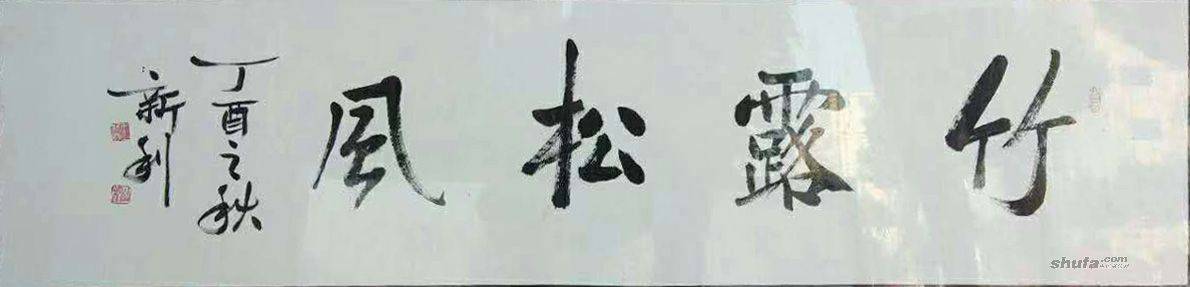 竹露松風
丁酉之秋
新利
shufa.com